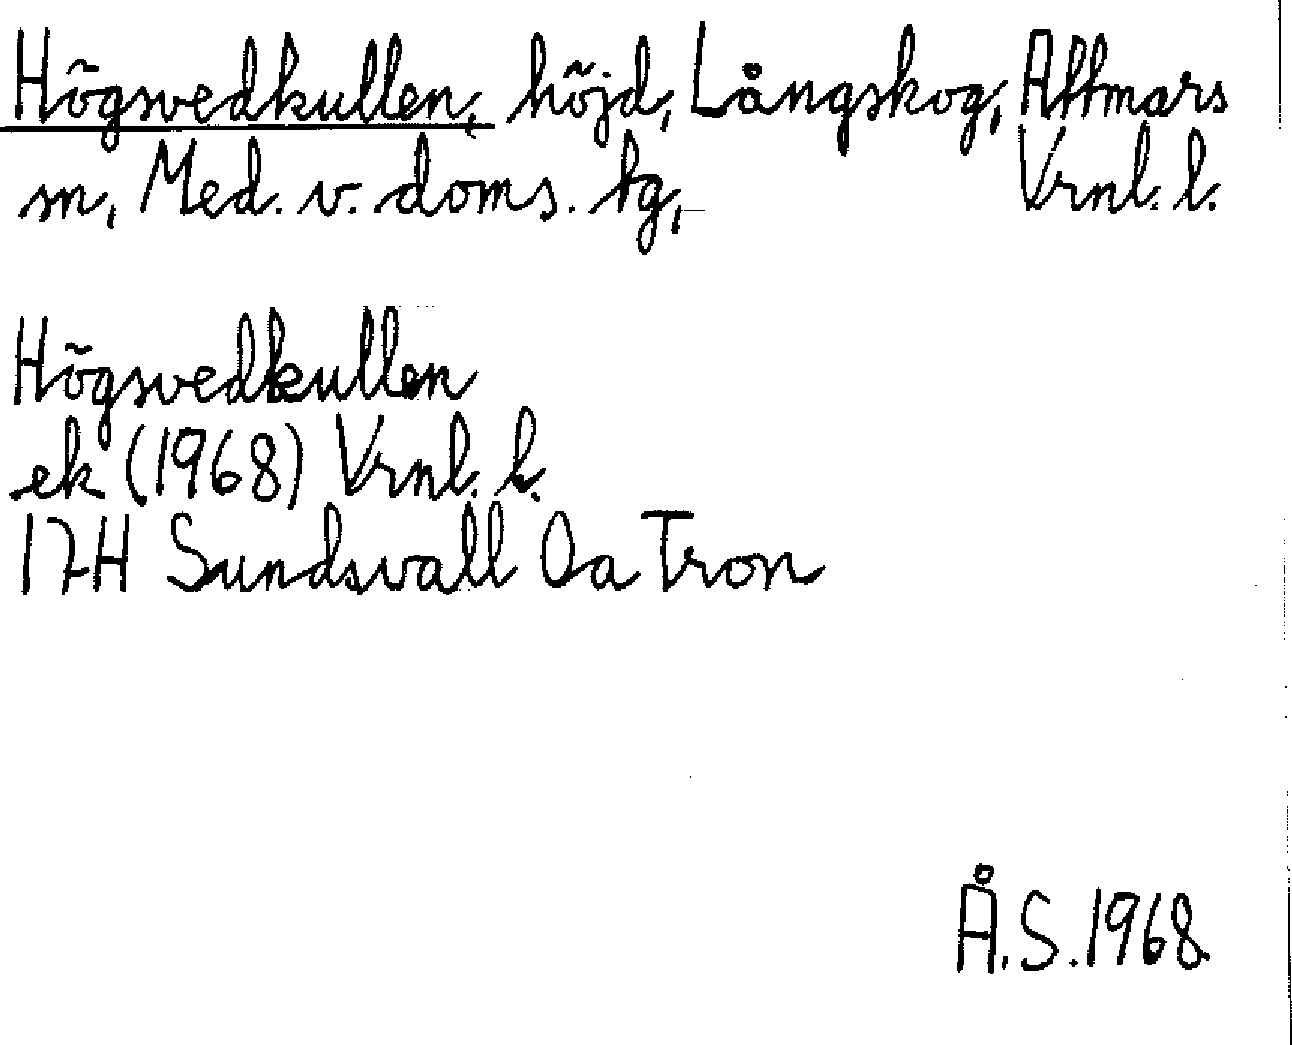 Högsvedkullen, höjd, Långskog, Attmars
sn, Med. v. doms. tg, Vrnl. l.
Högsvedkullen
ek (1968) Vrnl. l.
17H Sundsvall Oa Tron
Å.S. 1968